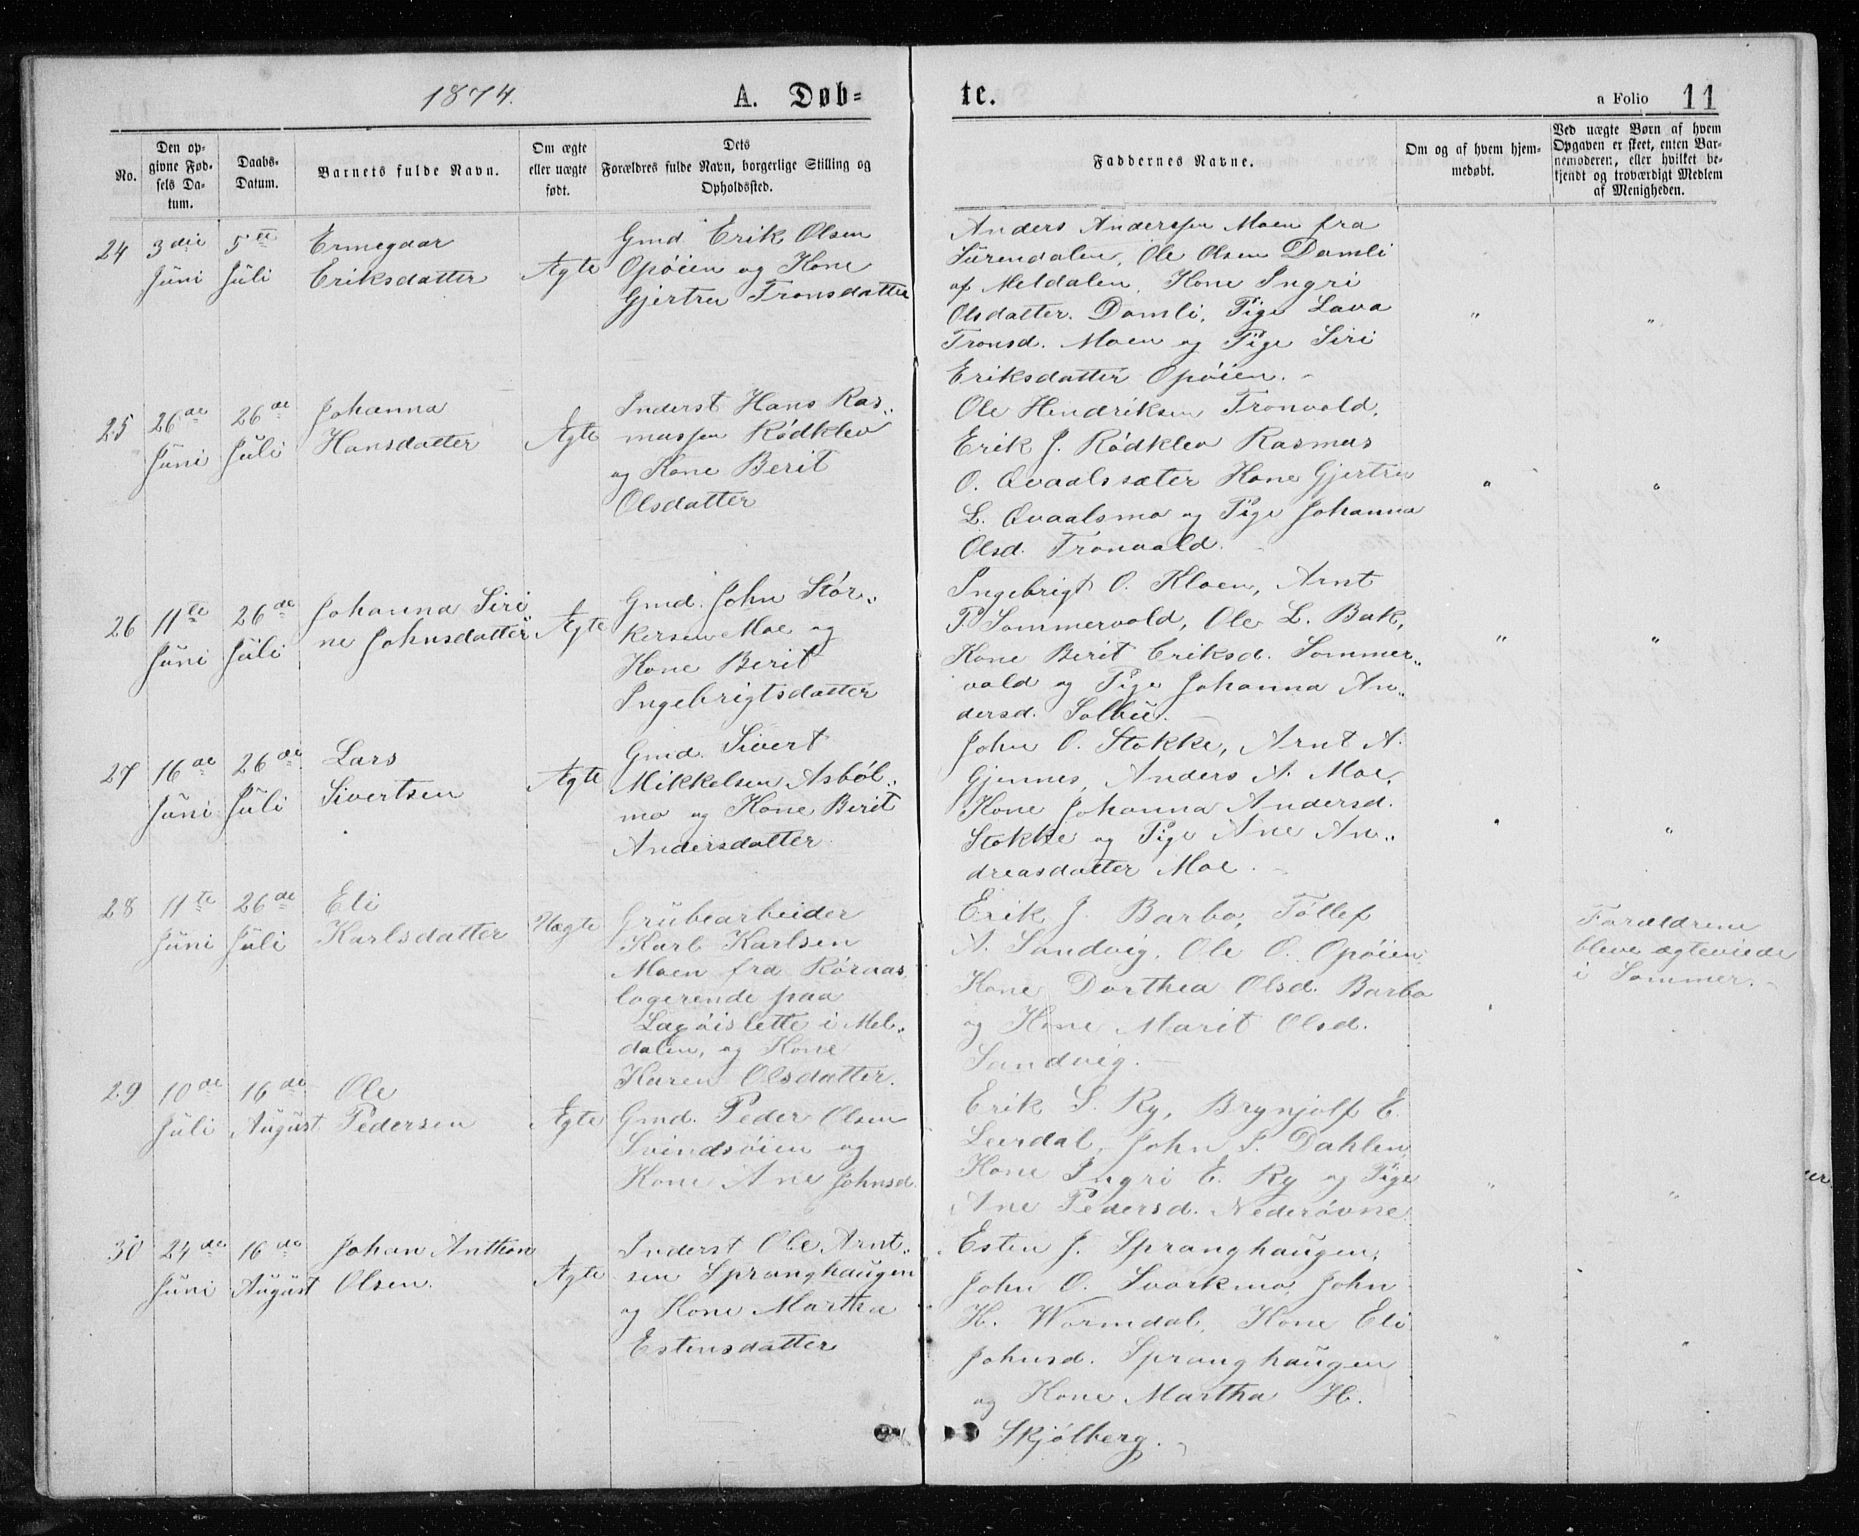 1874.
A. Døb-
te.
a Folio 11
No.
Den op-
givne Fød-
sels Da-
tum.
Daabs-
Datum.
Barnets fulde Navn.
Om ægte
eller uægte
født.
Dets
Forældres fulde Navn, borgerlige Stilling og
Opholdssted.
Faddernes Navne.
Om og af hvem hjem-
medøbt.
Ved uægte Børn af hvem
Opgaven er skeet, enten Bar-
nemoderen, eller hvilket be-
kjendt og troværdigt Medlem
af Menigheden.
24
3die
Juni
5te
Juli
Ermegaar
Eriksdatter
Ægte
Gmd. Erik Olsen
Opøien og Kone
Gjertru Tronsdatter
Anders Anderssen Moen fra
Surendalen, Ole Olsen Damli
af Meldalen, Kone Ingri
Olsdatter. Damli, Pige Lava
Tronsd. Moen og Pige Siri
Eriksdatter Opøien. -
"
"
25
26de
Juni
26de
Juli
Johanna
Hansdatter
Ægte
Inderst Hans Ras„
massen Rødklev
og Kone Berit
Olsdatter
Ole Hendriksen Tronvold,
Erik J. Rødklev Rasmus
O. Qvaalssæter Kone Gjertru
L. Qvaalsmo og Pige Johanna
Olsd. Tronvald.
"
"
26
11te
Juni
26de
Juli
Johanna Siri
ne Johnsdatter
Ægte
Gmd. John Stør„
kersen Moe og
Kone Berit
Ingebrigtsdatter
Ingebrigt O. Kloen, Arnt
P. Sommervold, Ole L. Bak,
Kone Berit Eriksd. Sommer„
vold og Pige Johanna An„
dersd. Solbu. -
"
"
27
16de
Juni
26de
Juli
Lars
Sivertsen
Ægte
Gmd. Sivert
Mikkelsen Asbøl„
mo og Kone Berit
Andersdatter.
John O. Stokke, Arnt A.
Gjennes, Anders A. Moe,
Kone Johanna Andersd.
Stokke og Pige Ane An„
dreasdatter Moe. -
"
"
28
11te
Juni
26de
Juli
Eli
Karlsdatter
Uægte
Grubearbeider
Karl Karlsen
Moen fra Røraas,
logerende paa
Laqøislette i Mel„
dalen, og Kone
Karen Olsdatter.
Erik J. Barbo, Tøllef
A. Sandvig, Ole O. Opøien
Kone Dorthea Olsd. Barbo
og Kone Marit Olsd.
Sandvig. -
"
Forældrene
bleve ægteviede
i Sommer. -
29
10de
Juli
16de
August
Ole
Pedersen
Ægte
Gmd. Peder Olsen
Svindsøien og
Kone Ane Johnsd.
Erik S. Ry, Brynjolf E.
Leerdal, John S. Dahlen,
Kone Ingri E. Ry og Pige
Ane Pedersd. Nederøvne
"
"
30
24de
Juni
16de
August
Johan Anthon
Olsen.
Ægte
Inderst Ole Arnt„
sen Spranghaugen
og Kone Martha
Estensdatter
Esten J. Spranghaugen,
John O. Svorkmo, John
H. Wormdal, Kone Eli
Johnsd. Spranghaugen
og Kone Martha H.
Skjølberg. -
"
"